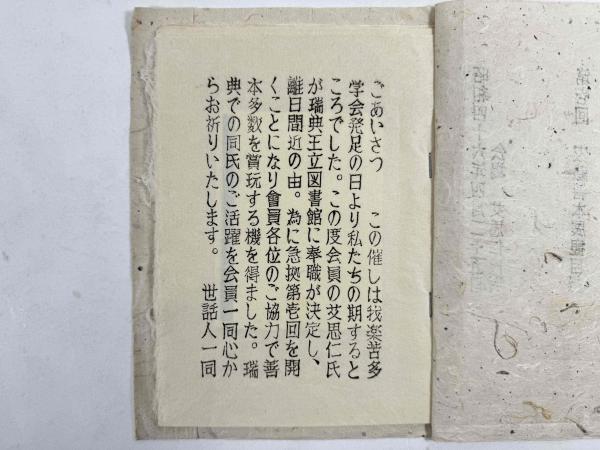 ごあいさつ　この催しは我楽苦多
学会発足の日より私たちの期すると
ころでした。この度会員の艾思仁氏
が瑞典王立図書館に奉職が決定し、
離日間近の由。為に急拠第壱回を開
くことになり會員各位のご協力で善
本多数を賞玩する機を得ました。瑞
典での同氏のご活躍を会員一同心か
らお祈りいたします。　世話人一同